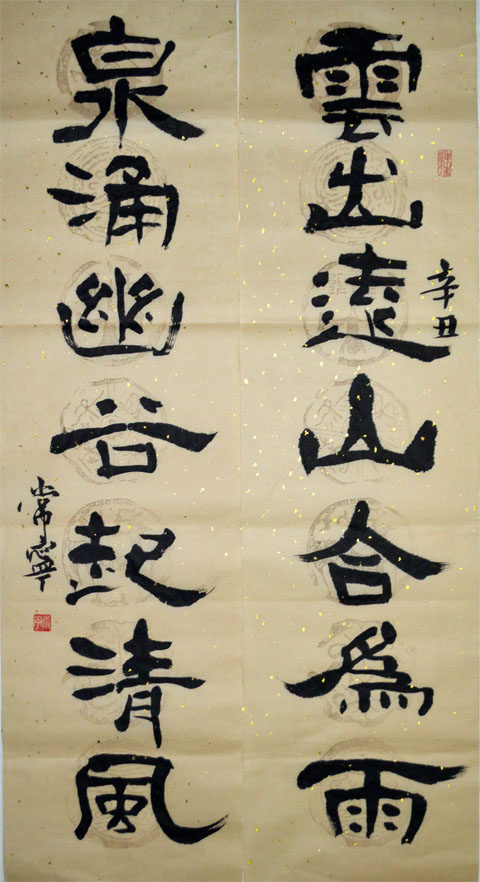 雲出遠山合為雨
辛丑
泉涌幽谷起清風
常寧